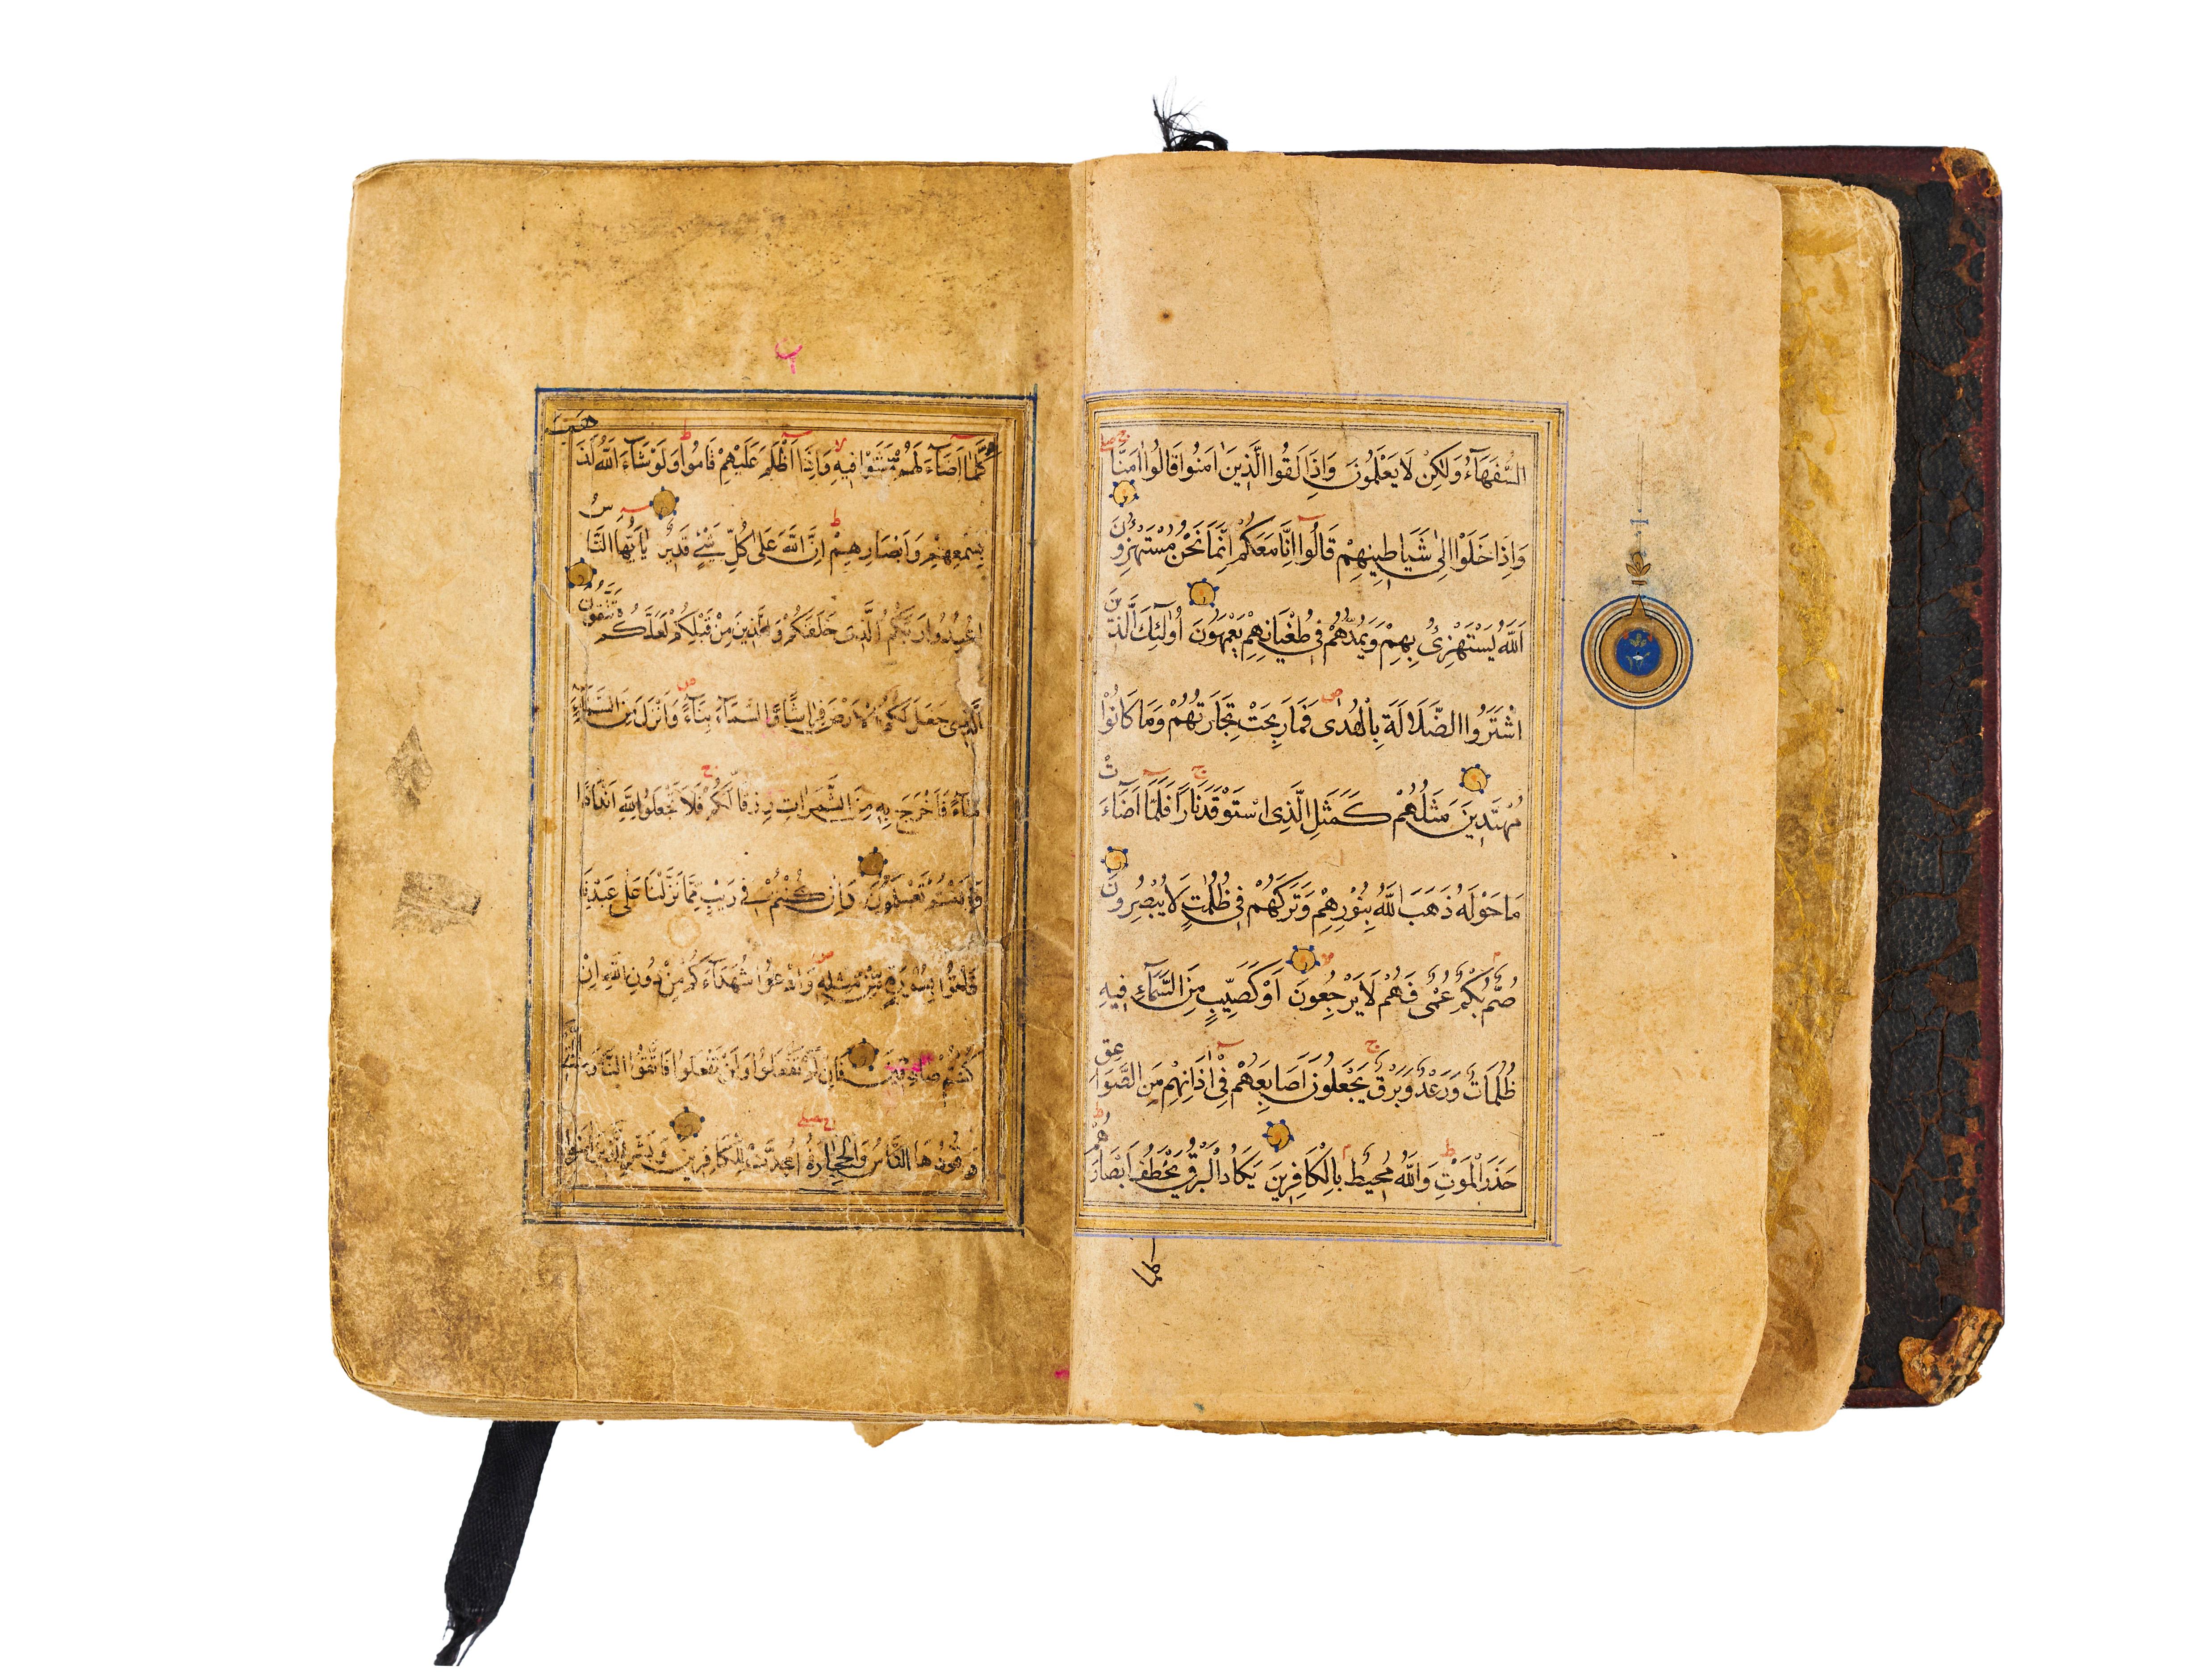 السُّفَهَآءُ وَلٰكِنْ لَا يَعْلَمُونَ وَاِذَا لَقُوا الَّذِينَ اٰمَنُوا قَالُوا اٰمَنَّا
وَاِذَا خَلَوْا اِلٰى شَيَاطِينِهِمْ قَالُوا اِنَّا مَعَكُمْ اِنَّمَا نَحْنُ مُسْتَهْزِؤُنَ
اَللّٰهُ يَسْتَهْزِئُ بِهِمْ وَيَمُدُّهُمْ فِي طُغْيَانِهِمْ يَعْمَهُونَ اُولٰٓئِكَ الَّذِينَ
اشْتَرَوُا الضَّلَالَةَ بِالْهُدٰى فَمَا رَبِحَتْ تِجَارَتُهُمْ وَمَا كَانُوا
مُهْتَدِينَ مَثَلُهُمْ كَمَثَلِ الَّذِى اسْتَوْقَدَ نَارًا فَلَمَّا اَضَآءَتْ
مَا حَوْلَهُ ذَهَبَ اللّٰهُ بِنُورِهِمْ وَتَرَكَهُمْ فِي ظُلُمٰتٍ لَا يُبْصِرُونَ
صُمٌّ بُكْمٌ عُمْىٌ فَهُمْ لَا يَرْجِعُونَ اَوْ كَصَيِّبٍ مِنَ السَّمَآءِ فِيهِ
ظُلُمَاتٌ وَرَعْدٌ وَبَرْقٌ يَجْعَلُونَ اَصَابِعَهُمْ فِي اٰذَانِهِمْ مِنَ الصَّوَاعِقِ
حَذَرَ الْمَوْتِ وَاللّٰهُ مُحِيطٌ بِالْكَافِرِينَ يَكَادُ الْبَرْقُ يَخْطَفُ اَبْصَارَهُمْ
كلما
كُلَّمَا اَضَآءَ لَهُمْ مَشَوْا فِيهِ وَاِذَا اَظْلَمَ عَلَيْهِمْ قَامُوا وَلَوْ شَآءَ اللّٰهُ لَذَهَبَ
بِسَمْعِهِمْ وَاَبْصَارِهِمْ اِنَّ اللّٰهَ عَلٰى كُلِّ شَيْءٍ قَدِيرٌ يٰاَيُّهَا النَّاسُ
اعْبُدُوا رَبَّكُمُ الَّذِى خَلَقَكُمْ وَالَّذِينَ مِنْ قَبْلِكُمْ لَعَلَّكُمْ تَتَّقُونَ
الَّذِى جَعَلَ لَكُمُ الْاَرْضَ فِرَاشًا وَالسَّمَآءَ بِنَآءً وَاَنْزَلَ مِنَ السَّمَآءِ
مَآءً فَاَخْرَجَ بِهِ مِنَ الثَّمَرَاتِ رِزْقًا لَكُمْ فَلَا تَجْعَلُوا لِلّٰهِ اَنْدَادًا
وَاَنْتُمْ تَعْلَمُونَ وَاِنْ كُنْتُمْ فِي رَيْبٍ مِمَّا نَزَّلْنَا عَلٰى عَبْدِنَا
فَأْتُوا بِسُورَةٍ مِنْ مِثْلِهِ وَادْعُوا شُهَدَآءَكُمْ مِنْ دُونِ اللّٰهِ اِنْ
كُنْتُمْ صَادِقِينَ فَاِنْ لَمْ تَفْعَلُوا وَلَنْ تَفْعَلُوا فَاتَّقُوا النَّارَ الَّتِي
وَقُودُهَا النَّاسُ وَالْحِجَارَةُ اُعِدَّتْ لِلْكَافِرِينَ وَبَشِّرِ الَّذِينَ اٰمَنُوا